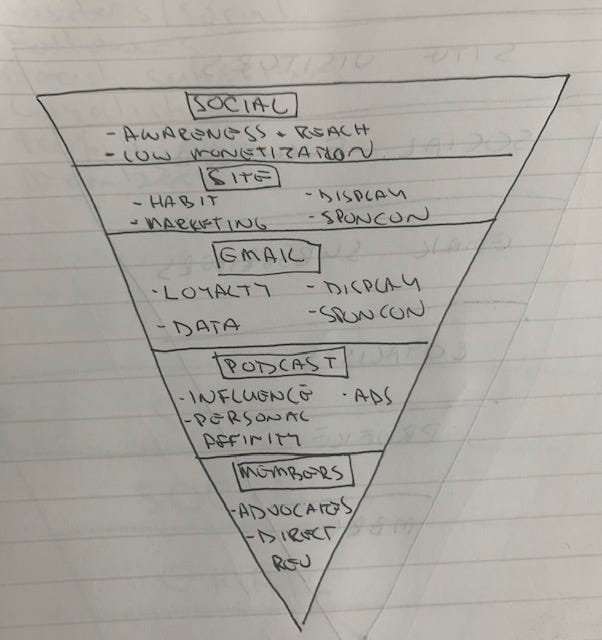 SOCIAL
- AWARENESS + REACH
- LOW MONETIZATION
SITE
- HABIT - DISPLAY
- MARKETING - SPONCON
EMAIL
- LOYALTY - DISPLAY
- DATA - SPONCON
PODCAST
- INFLUENCE - ADS
- PERSONAL
AFFINITY
MEMBERS
- ADVOCATES
- DIRECT
REV